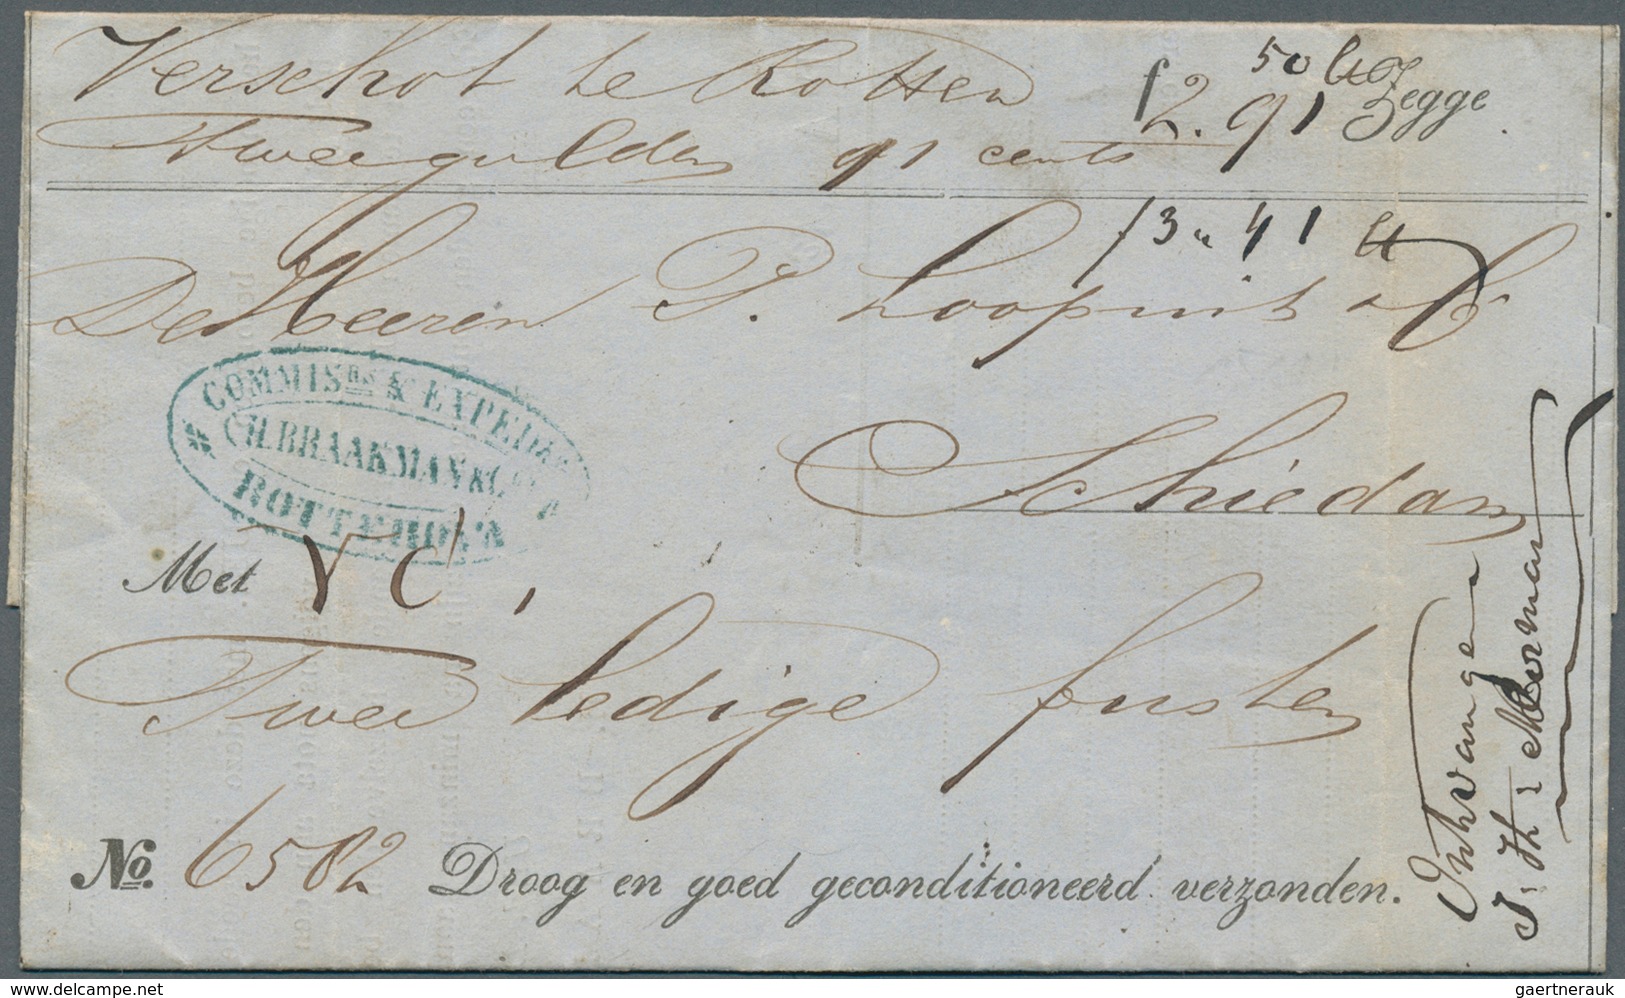 50 Ct
Verschot te Rotten f 2.91 Zegge
Twee gulden 91 cents
f 3 " 41 Ct
De Heeren P. Loopuit & C°
COMMISRS & EXPEDIT
CH. BRAAKMAN & CO.
ROTTERDAM
Schiedam
Met
Twee ledige fusten
No. 6582 Droog en goed geconditioneerd verzonden.
Ontvangen
J. Th. Moorman
delcampe.net
gaertnerauk